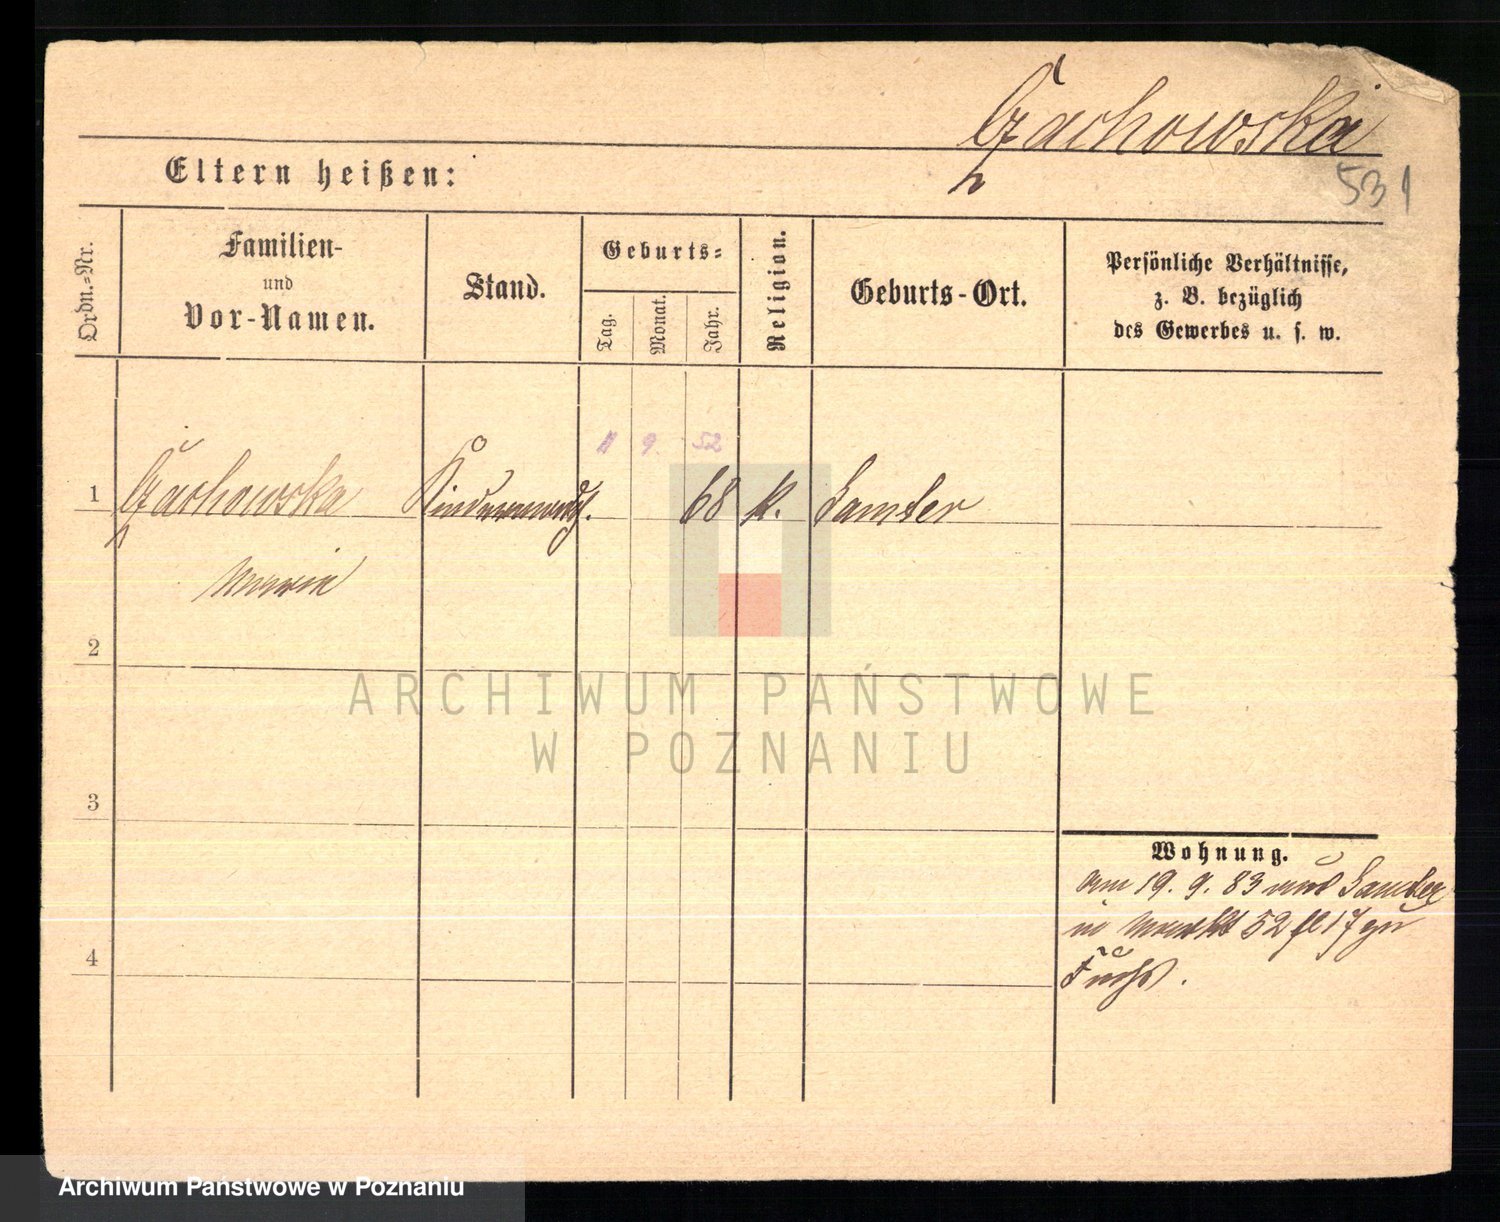 Czachowska
Eltern heißen:
531
Ordn.=Nr.
Familien-
und
Vor-Namen.
Stand.
Geburts=
Tag.
Monat.
Jahr.
Religion.
Geburts-Ort.
Persönliche Verhältnisse,
z. B. bezüglich
des Gewerbes u. s. w.
9. 52
1 Czachowska Kindermdch. 68 k. Samter
Marie
2
ARCHIWUM PAŃSTWOWE
W POZNANIU
3
Wohnung.
am 19. 9. 83 aus Samter
in Markt 52 bei
Fuchs.
4
Archiwum Państwowe w Poznaniu